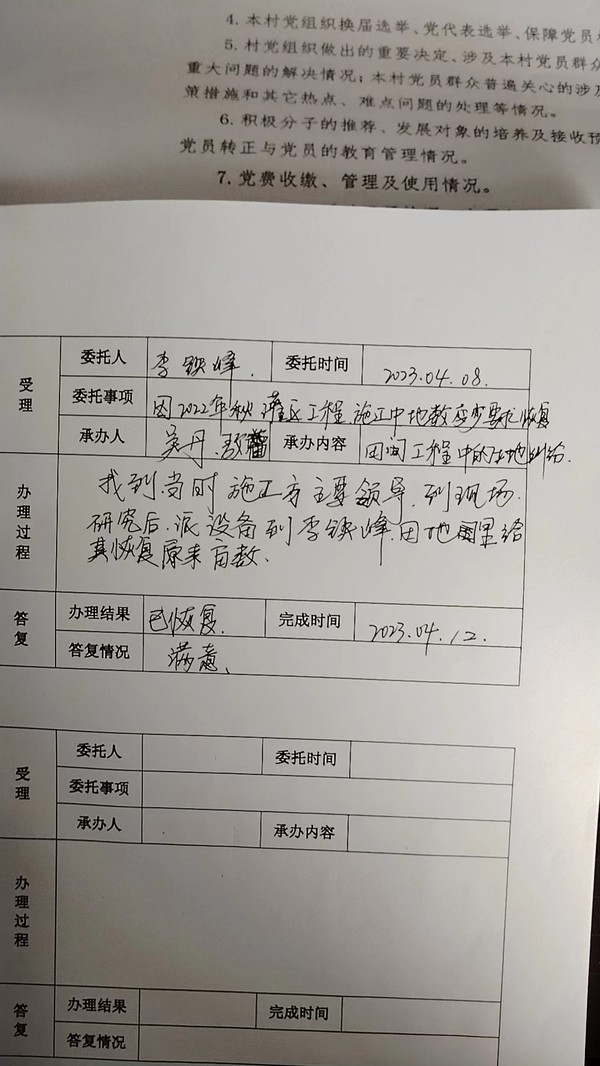 4. 本村党组织换届选举、党代表选举、保障党员
5. 村党组织做出的重要决定、涉及本村党员群众
重大问题的解决情况；本村党员群众普遍关心的涉及
策措施和其它热点、难点问题的处理等情况。
6. 积极分子的推荐、发展对象的培养及接收预
党员转正与党员的教育管理情况。
7. 党费收缴、管理及使用情况。
受理
委托人 李铁峰. 委托时间 2023.04.08.
委托事项 因2022年秋灌区工程施工中地数变少要求恢复
承办人 吴丹. 承办内容 田间工程中的土地纠纷.
办理过程
找到当时施工方主要领导.到现场.
研究后.派设备到李铁峰.田地里给
其恢复原来亩数.
答复
办理结果 已恢复. 完成时间 2023.04.12.
答复情况 满意、
受理
委托人 委托时间
委托事项
承办人 承办内容
办理过程
答复
办理结果 完成时间
答复情况